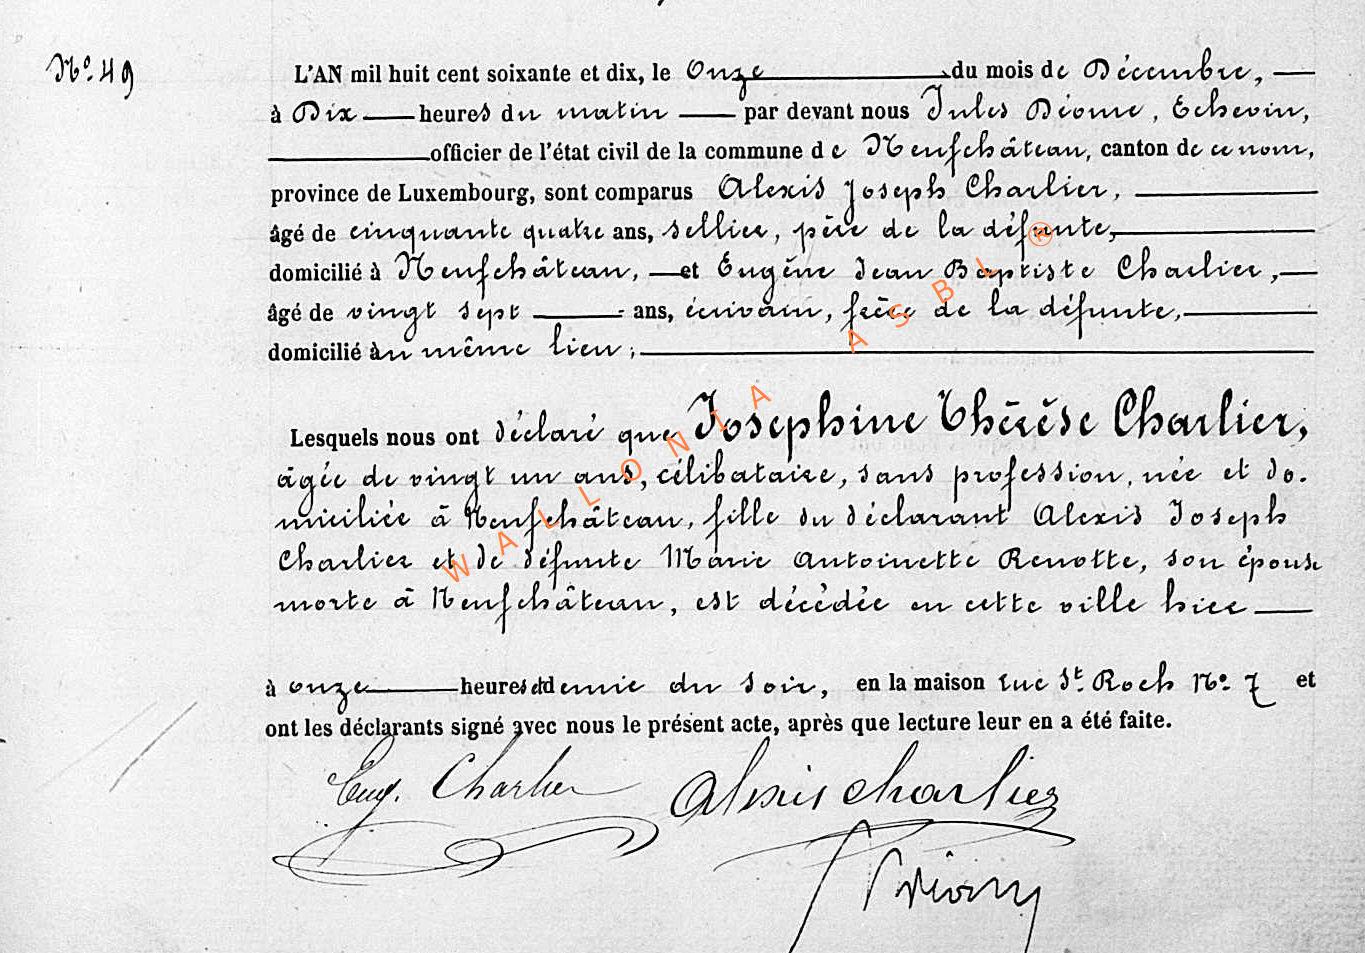 Nº. 49
L'AN mil huit cent soixante et dix, le Onze du mois de Décembre,
à Dix heures du matin par devant nous Jules Déome, Echevin,
officier de l'état civil de la commune de Neufchâteau, canton de ce nom,
province de Luxembourg, sont comparus Alexis Joseph Charlier,
âgé de cinquante quatre ans, sellier, père de la défunte,
domicilié à Neufchâteau, et Eugène Jean Baptiste Charlier,
âgé de vingt sept ans, écrivain, frère de la défunte,
domicilié au même lieu;
Lesquels nous ont déclaré que Josephine Thérèse Charlier,
âgée de vingt un ans, célibataire, sans profession, née et do-
miciliée à Neufchâteau, fille du déclarant Alexis Joseph
Charlier et de défunte Marie Antoinette Renotte, son épouse
morte à Neufchâteau, est décédée en cette ville hier
à onze heures et demie du soir, en la maison rue St. Roch Nº. 7 et
ont les déclarants signé avec nous le présent acte, après que lecture leur en a été faite.
Eug. Charlier Alexis Charlier
WALLONIA ASBL ®